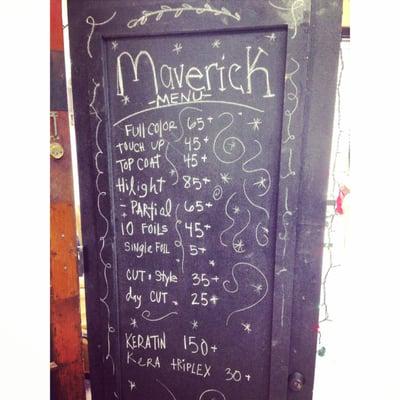 Maverick
-MENU-
Full Color 65+
touch up 45+
TOP COAT 45+
Hilight 85+
- PARtial 65+
10 Foils 45+
Single Foil 5+
CUT & Style 35+
day CUT 25+
KERATIN 150+
KERA tRIPLEX 30+